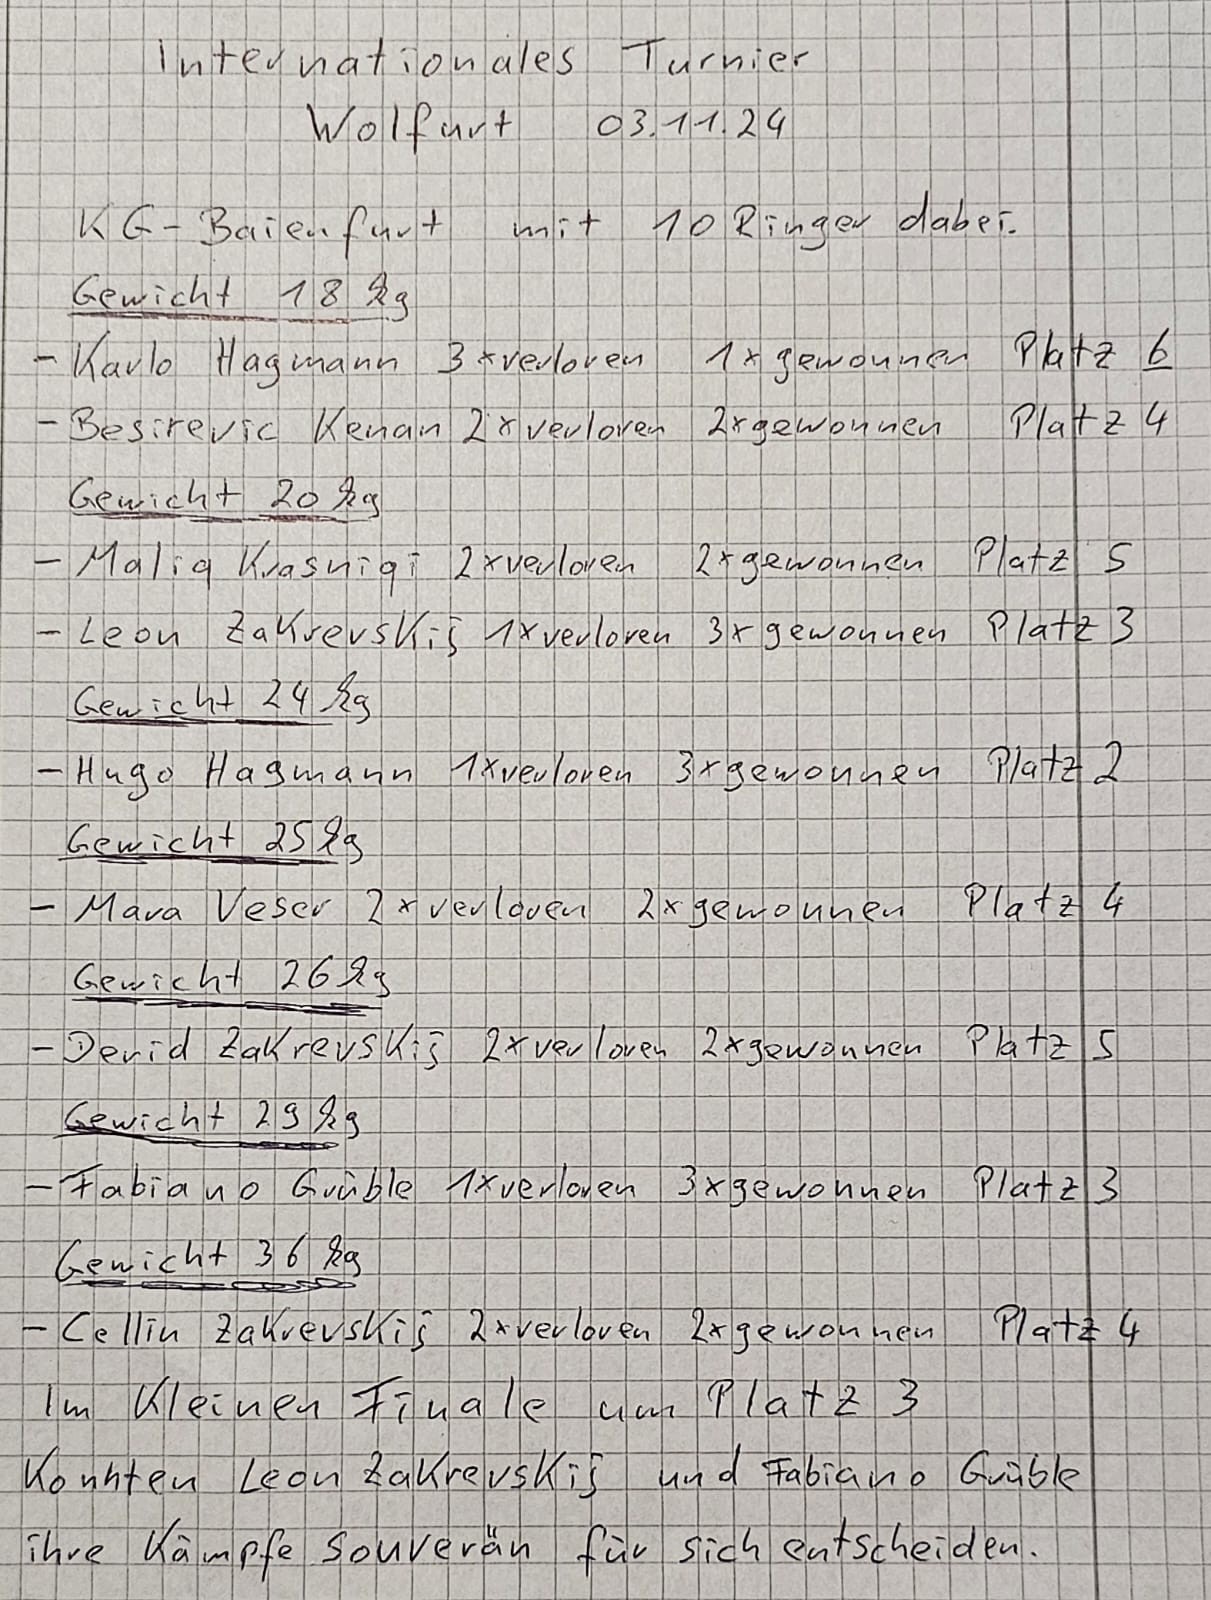 Internationales Turnier
Wolfurt 03.11.24
KG-Baienfurt mit 10 Ringer dabei.
Gewicht 18 kg
- Karlo Hagmann 3x verloren 1x gewonnen Platz 6
- Besirevic Kenan 2x verloren 2x gewonnen Platz 4
Gewicht 20 kg
- Maliq Krasniqi 2x verloren 2x gewonnen Platz 5
- Leon Zakrevskij 1x verloren 3x gewonnen Platz 3
Gewicht 24 kg
- Hugo Hagmann 1x verloren 3x gewonnen Platz 2
Gewicht 25 kg
- Mara Veser 2x verloren 2x gewonnen Platz 4
Gewicht 26 kg
- Devid Zakrevskij 2x verloren 2x gewonnen Platz 5
Gewicht 29 kg
- Fabiano Grüble 1x verloren 3x gewonnen Platz 3
Gewicht 36 kg
- Cellin Zakrevskij 2x verloren 2x gewonnen Platz 4
Im Kleinen Finale um Platz 3
Konnten Leon Zakrevskij und Fabiano Grüble
ihre Kämpfe souverän für sich entscheiden.